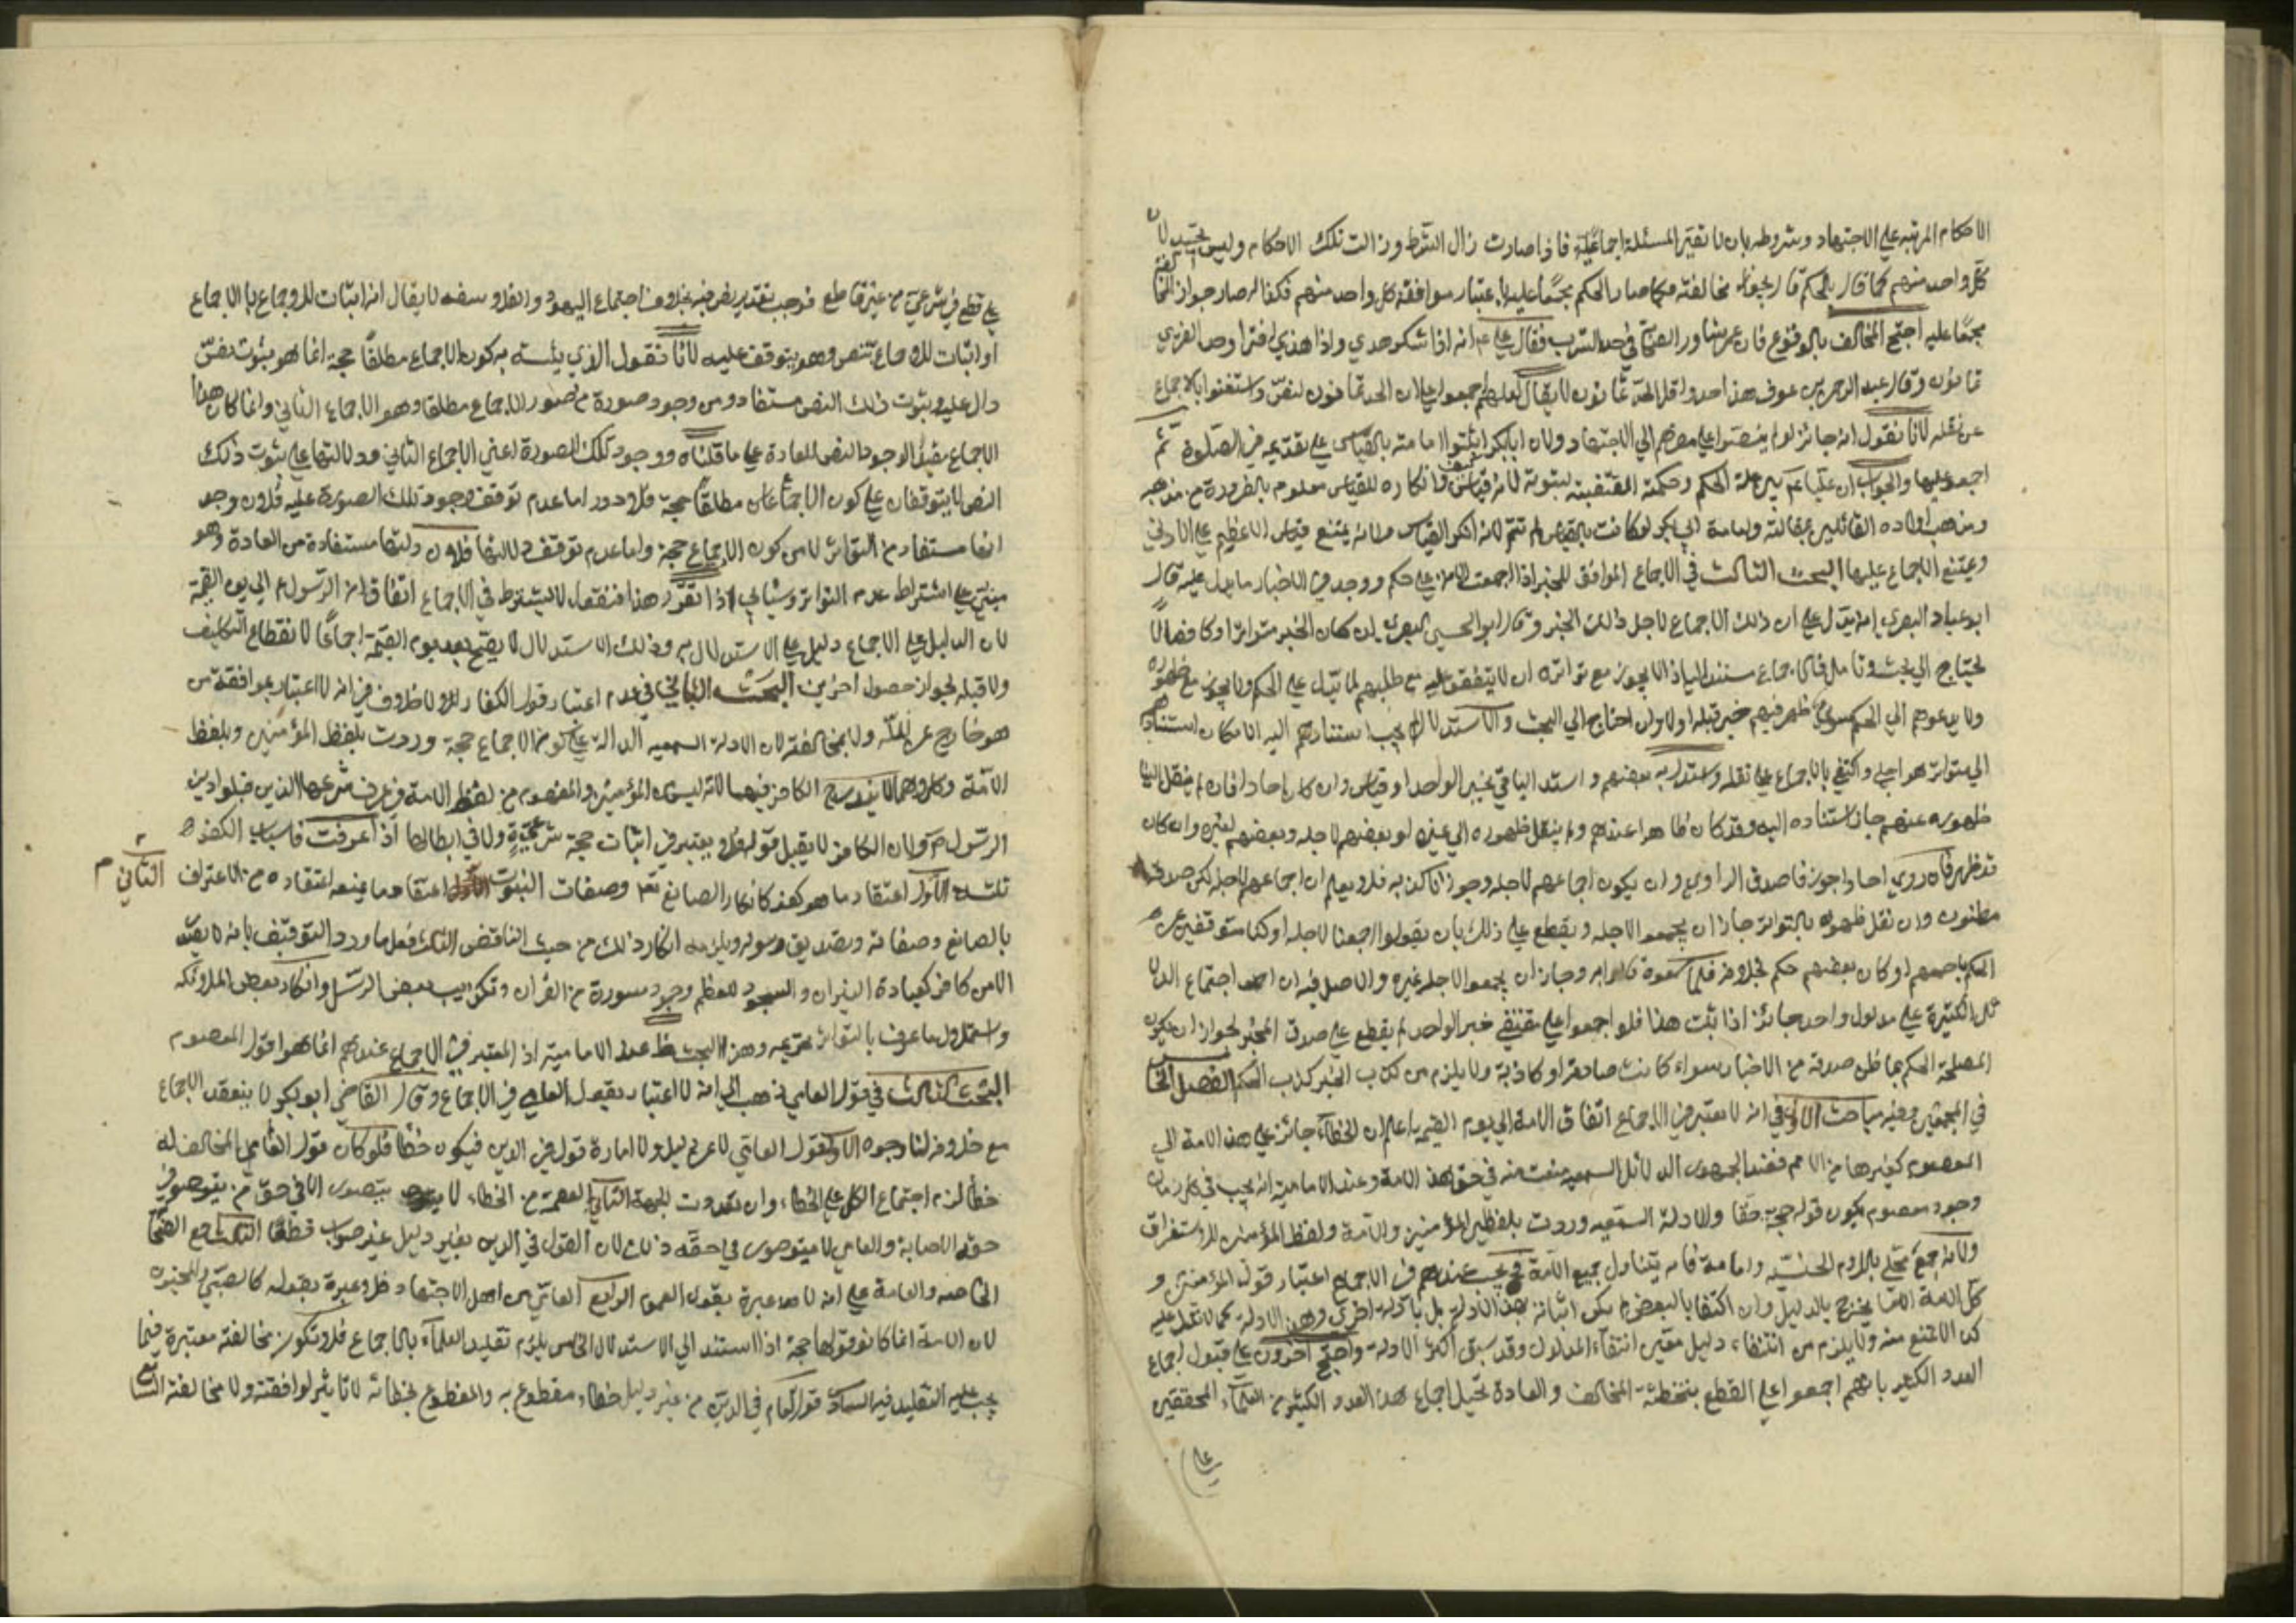 الاحكام المرتبه على الاجتهاد وشروطه بان لا تصير المسئلة اجماعية فاذا صارت زال الشرط وزالت تلك الاحكام وليس بجيد لان
كل واحد منهم كما قال بالحكم قال بجواز مخالفته فكما صار الحكم مجمعا عليه باعتبار موافقة كل واحد منهم فكذا لو صار جواز المخالفة
مجمعا عليه احتج المخالف بالوقوع فان عمر شاور الصحابة في حد الشرب فقال علي ع انه اذا شرب سكر هذي واذا هذي افترى وحد المفتري
ثمانون وقال عبد الرحمن بن عوف هذا حد واقل الحد ثمانون لا يقال لعلهم اجمعوا على ان الحد ثمانون لنص واستغنوا بالاجماع
عن نقله لانا نقول انه جائز لو لم ينصوا على مصيرهم الى الاجتهاد ولان ابا بكر اثبتوا امامته بالقياس على تقديمه في الصلوة ثم
اجمعوا عليها والجواب ان عليا ع بين علة الحكم وحكمته المقتضية لثبوته لا انه قياس وانكاره للقياس معلوم بالضرورة من مذهبه
ومذهب اولاده القائلين بمقالته وامامة ابي بكر لو كانت بالقياس لم تتم لانه انكر القياس ولانه يمتنع قياس الاعظم على الادنى
ويمتنع الاجماع عليها البحث الثالث في الاجماع الموافق للخبر اذا اجمعت الامة على حكم ووجد في الاخبار ما يدل عليه قال
ابو عبد الله البصري انه يدل على ان ذلك الاجماع لاجل ذلك الخبر وقال ابو الحسين البصري ان كان الخبر متواترا وكان نصا لا
يحتاج الى بحث وتامل فالاجماع مستند اليه اذ لا يجوز مع تواتره ان لا يتفقوا عليه مع طلبهم لما يدل على الحكم ولا يجوز مع ظهوره
ولا يدعوهم الى الحكم سواء ظهر فيهم خبر قبله او لا وان احتاج الى البحث والاستدلال لم يجب استنادهم اليه لامكان استنادهم
الى متواتر هو اجلى واكتفي بالاجماع على نقله واستدل به بعضهم واستدل الباقي بخبر الواحد او قياس وان كان احادا فان لم ينقل الينا
ظهوره عندهم جاز استناده اليه وقد كان ظاهرا عندهم ولم ينقل ظهوره الى غيره او بعضهم لاجله وبعضهم لغيره وان كان
قد ظهر فان روي احادا جوزنا صدق الراوي وان يكون اجماعهم لاجله وجوزنا كذبه فلا يعلم ان اجماعهم لاجله لكن صدقه
مظنون وان نقل ظهوره بالتواتر جاز ان يجمعوا لاجله ويقطع على ذلك بان يقولوا اجمعنا لاجله او كنا متوقفين عن
الحكم باجمعهم او كان بعضهم حكم بخلافه فلما سمعوه قالوا به وجاز ان يجمعوا لاجل غيره والاصل فيه ان اجتماع الدلا
ئل الكثيرة على مدلول واحد جائز اذا ثبت هذا فلو اجمعوا على مقتضى خبر الواحد لم يقطع على صدق المخبر لجواز ان يكون
المصلحة الحكم بما ظن صدقه من الاخبار سواء كانت صادقة او كاذبة ولا يلزم من كذب الخبر كذب الحكم الفصل الخامس
في المجمعين وفيه مباحث الاول في انه لا يعتبر في الاجماع اتفاق الامة الى يوم القيمة اعلم ان الخطاء جائز على هذه الامة الى
المعصوم كغيرها من الامم فعند الجمهور الدلائل السمعيه منعت منه في حق هذه الامة وعند الامامية انه يجب في كل زمان
وجود معصوم يكون قوله حجة حقا والادلة السمعيه وردت بلفظين المؤمنين والامة ولفظ المؤمنين للاستغراق
ولانه جمع محلى بلام الجنس واما الامة فانه يتناول جميع الامة فيجب عندهم في الاجماع اعتبار قول المؤمنين و
كل الامة الا ما يخرج بالدليل وان اكتفينا بالبعض لم يكن اثباته بهذه الادلة بل بادلة اخرى وهذه الادلة كما لا تدل عليه
كذا لا تمنع منه ولا يلزم من انتفاء دليل معين انتفاء المدلول وقد سبق اكثر الادلة واحتج اخرون على قبول اجماع
العدد الكثير بانهم اجمعوا على القطع بتخطئة المخالف والعادة تحيل اجماع هذا العدد الكثير من العلماء المحققين
على قطع في شرعي من غير قاطع فوجب تقدير نص فيه بخلاف اجتماع اليهود والفلاسفه لا يقال انه اثبات للاجماع بالاجماع
او اثبات للاجماع بنص وهو يتوقف عليه لانا نقول الذي يثبت به كون الاجماع مطلقا حجة انما هو بثبوت نص
دال عليه وثبوت ذلك النص مستفاد من وجود صورة من صور الاجماع مطلقا وهو الاجماع الثاني وانما كان هذا
الاجماع مفيدا لوجود النص للعادة على ما قلناه ووجود تلك الصورة اعني الاجماع الثاني ودلالتها على ثبوت ذلك
النص لا يتوقفان على كون الاجماع مطلقا حجة فلا دور اما عدم توقف وجود تلك الصورة عليه فلان وجود
انما مستفاد من التواتر لا من كون الاجماع حجة واما عدم توقف دلالتها فلان دلالتها مستفادة من العادة وهو
مبني على اشتراط عدم التواتر وسياتي اذا تقرر هذا فنقول لا يشترط في الاجماع اتفاق من الرسول ص الى يوم القيمة
لان الدليل على الاجماع دليل على الاستدلال به وذلك الاستدلال لا يصح بعد يوم القيمة اجماعا لانقطاع التكليف
ولا قبله لجواز حصول اخرين البحث الثاني في عدم اعتبار قول الكفار لا خلاف في انه لا اعتبار بموافقة من
هو خارج عن الملة ولا بمخالفته لان الادلة السمعيه الدالة على كون الاجماع حجة وردت بلفظ المؤمنين وبلفظ
الامة وكلاهما لا يندرج الكافر فيهما لانه ليس من المؤمنين والمفهوم من لفظ الامة في عرف شرعنا الذين قبلوا دين
الرسول ص ولان الكافر لا يقبل قوله فلا يعتبر في اثبات حجة شرعية ولا في ابطالها اذا عرفت فاسباب الكفر
ثلثة الاول اعتقاد ما هو كفر كانكار الصانع تع وصفات النبوت اعتقاد ما يمنعه اعتقاده من الاعتراف
الثاني م
بالصانع وصفاته وتصديق رسوله ويلزمه انكار ذلك من حيث التناقض الثالث فعل ما ورد التوقيف بانه لا يفعله
الا من كافر كعبادة النيران والسجود للصنم وجحد سورة من القران وتكذيب بعض الرسل وانكار بعض الملائكه
واستحلال ما عرف بالتواتر تحريمه وهذا البحث سقط عند الامامية اذ المعتبر في الاجماع عندهم انما هو قول المعصوم
البحث الثالث في قول العامي ذهب الى انه لا اعتبار بقول العامي في الاجماع وقال القاضي ابو بكر لا ينعقد الاجماع
مع خلافه لنا وجوه الاول قول العامي لا عن دليل ولا امارة قول في الدين فيكون خطأ فلو كان قول العامي المخالف له
خطأ لزم اجتماع الكل على الخطاء وان تعددت الجهة الثاني العصمة من الخطاء لا يتصور الا في حق من يتصور في
حقه الاصابة والعامي لا يتصور في حقه ذلك لان القول في الدين بغير دليل غير صواب قطعا الثالث اجمع الصحابة
الخاصه والعامة على انه لا عبرة بقول العوام الرابع العامي ليس من اهل الاجتهاد فلا عبرة بقوله كالصبي والمجنون
لان الامة انما كان قولها حجة اذا استند الى الاستدلال الخامس يلزم تقليد العلماء بالاجماع فلا تكون مخالفته معتبرة فيما
يجب عليه التقليد فيه السادس قول العام في الدين من غير دليل خطاء مقطوع به والمقطوع بخطائه لا تاثير لموافقته ولا مخالفته السابع